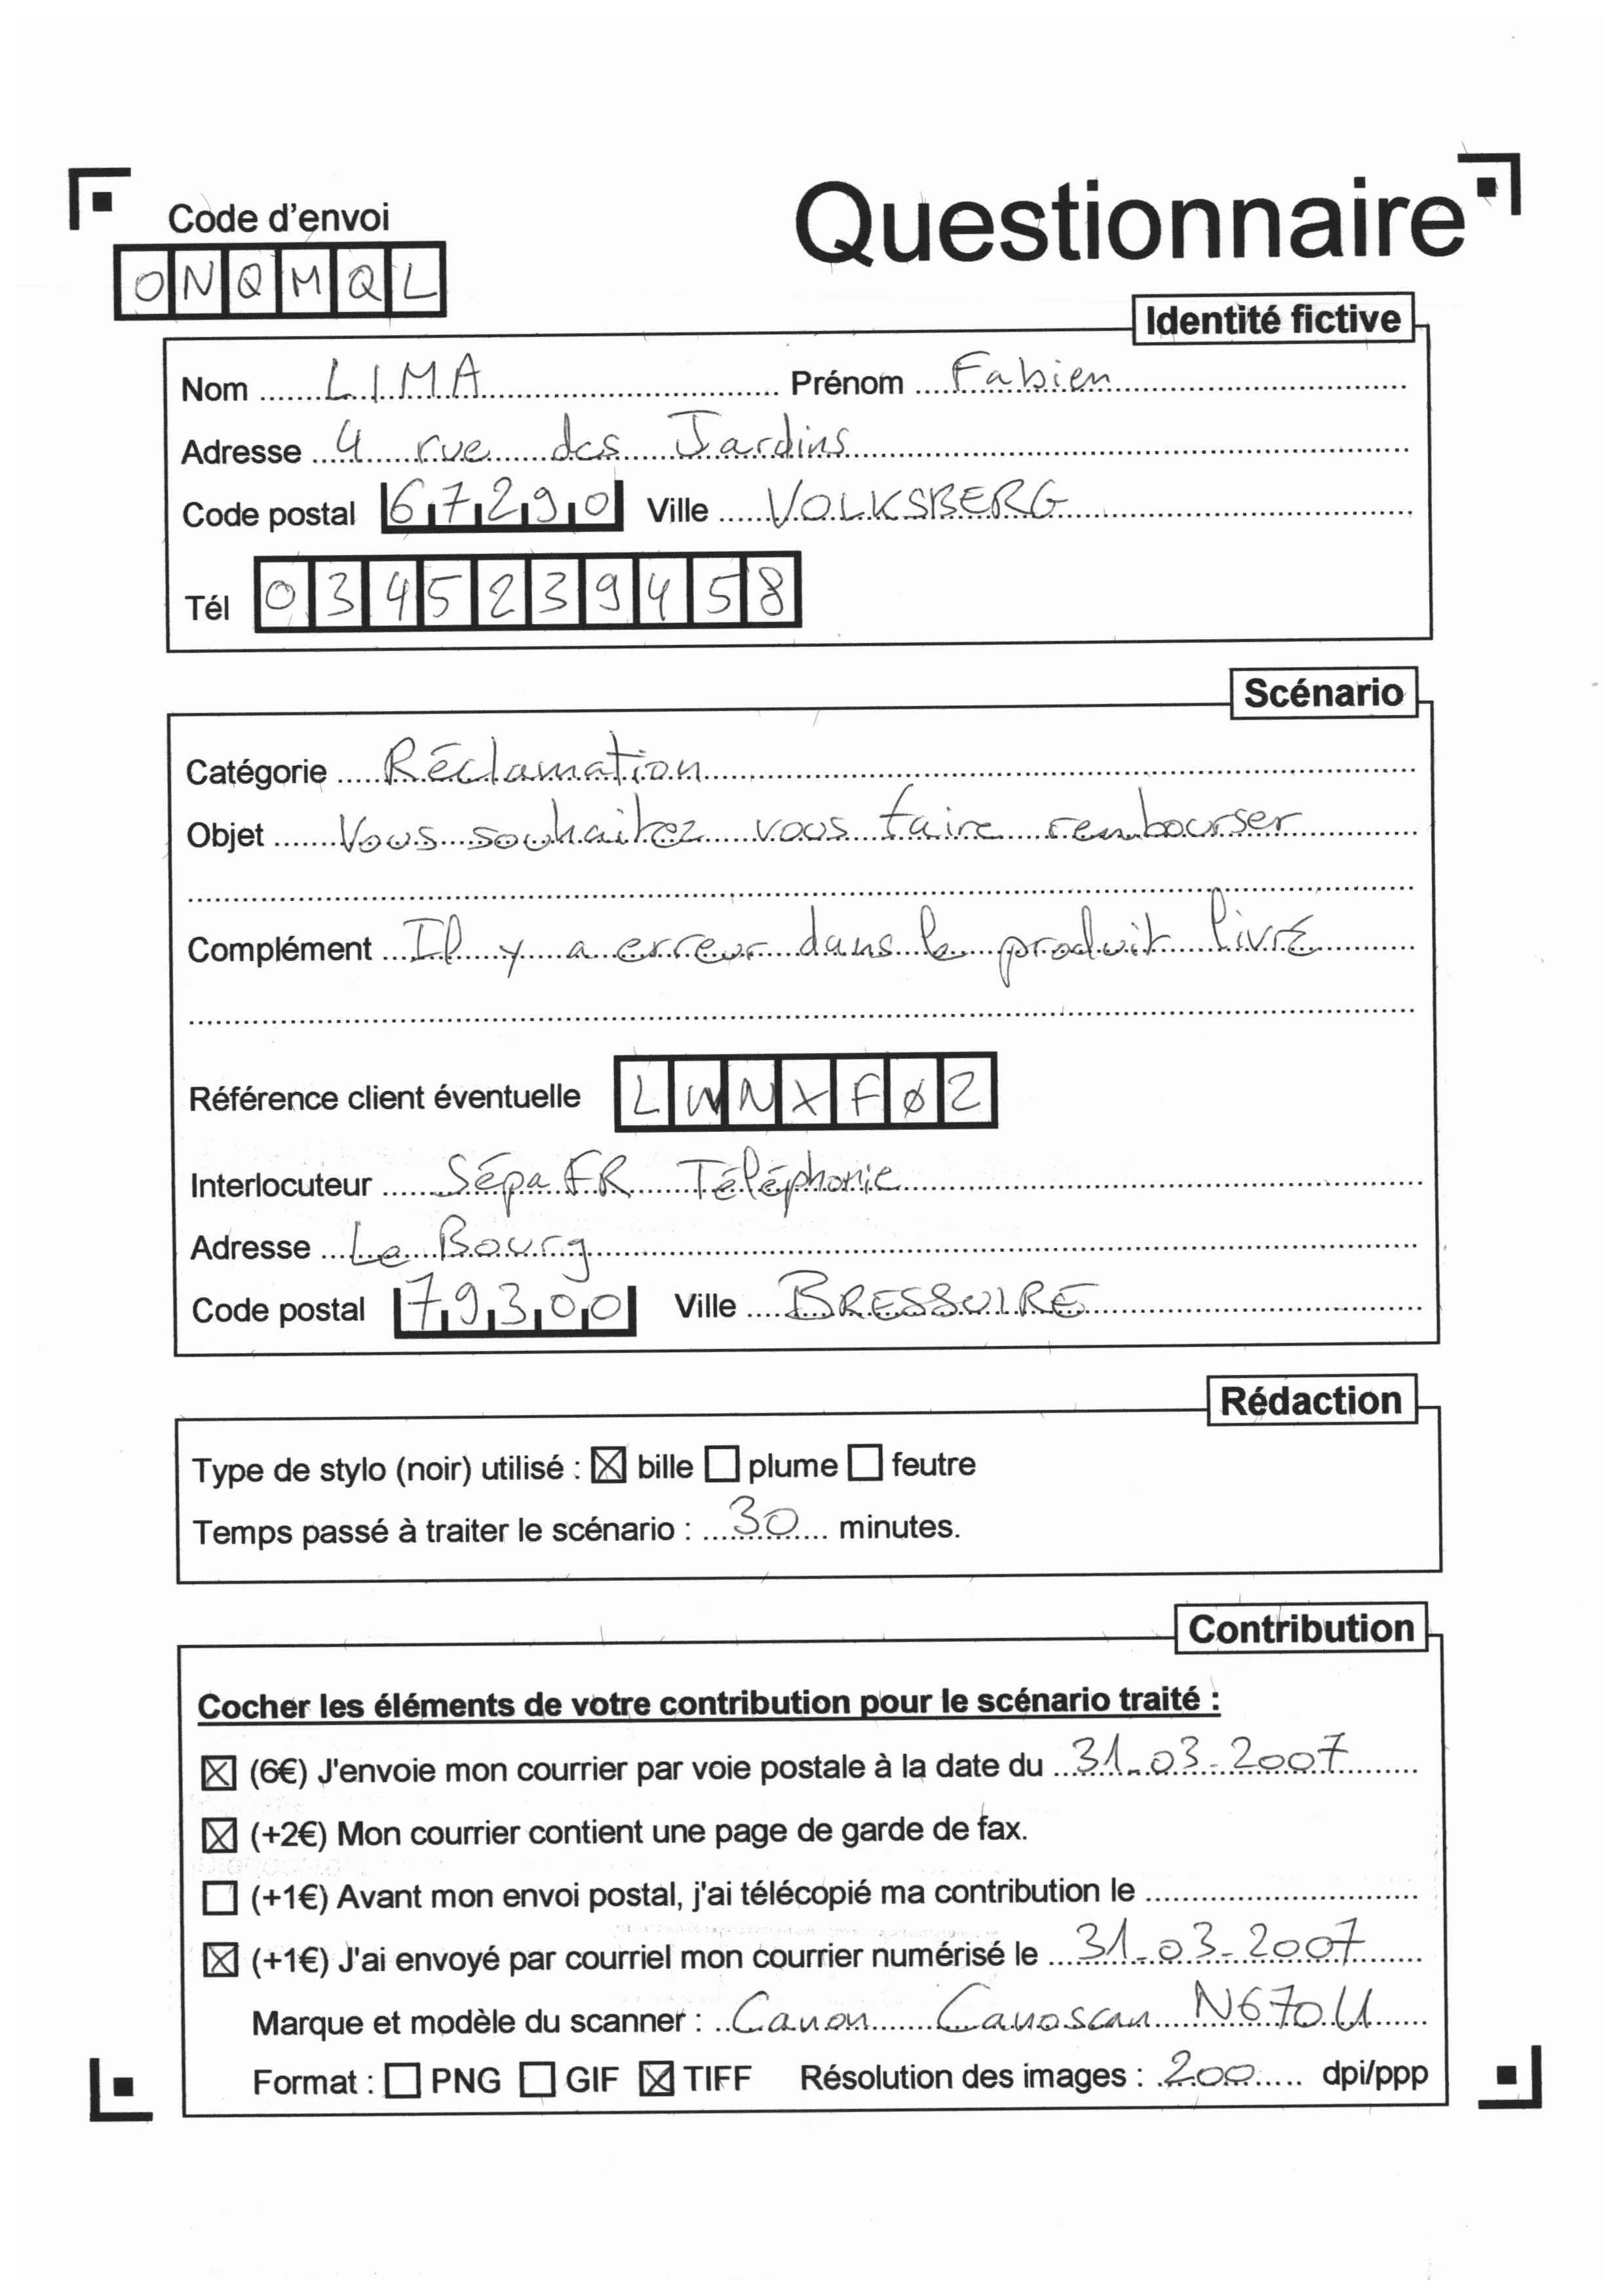 Questionnaire
Code d'envoi
ONQMQL
Identité fictive
Nom ....... LIMA ....... Prénom ....... Fabien .......
Adresse ....... 4 rue des Jardins .......
Code postal 67290 Ville ....... VOLKSBERG .......
Tél 0345239458
Scénario
Catégorie ....... Réclamation .......
Objet ....... Vous souhaitez vous faire rembourser .......
Complément ....... Il y a erreur dans le produit livré .......
Référence client éventuelle LWNXFØ2
Interlocuteur ....... SépaFR Téléphonie .......
Adresse ....... Le Bourg .......
Code postal 79300 Ville ....... BRESSUIRE .......
Rédaction
Type de stylo (noir) utilisé : ☒ bille ☐ plume ☐ feutre
Temps passé à traiter le scénario : ....... 30 ....... minutes.
Contribution
Cocher les éléments de votre contribution pour le scénario traité :
☒ (6€) J'envoie mon courrier par voie postale à la date du ....... 31-03-2007 .......
☒ (+2€) Mon courrier contient une page de garde de fax.
☐ (+1€) Avant mon envoi postal, j'ai télécopié ma contribution le .......
☒ (+1€) J'ai envoyé par courriel mon courrier numérisé le ....... 31-03-2007 .......
Marque et modèle du scanner : ....... Canon Canoscan N670U .......
Format : ☐ PNG ☐ GIF ☒ TIFF Résolution des images : ....... 200 ....... dpi/ppp